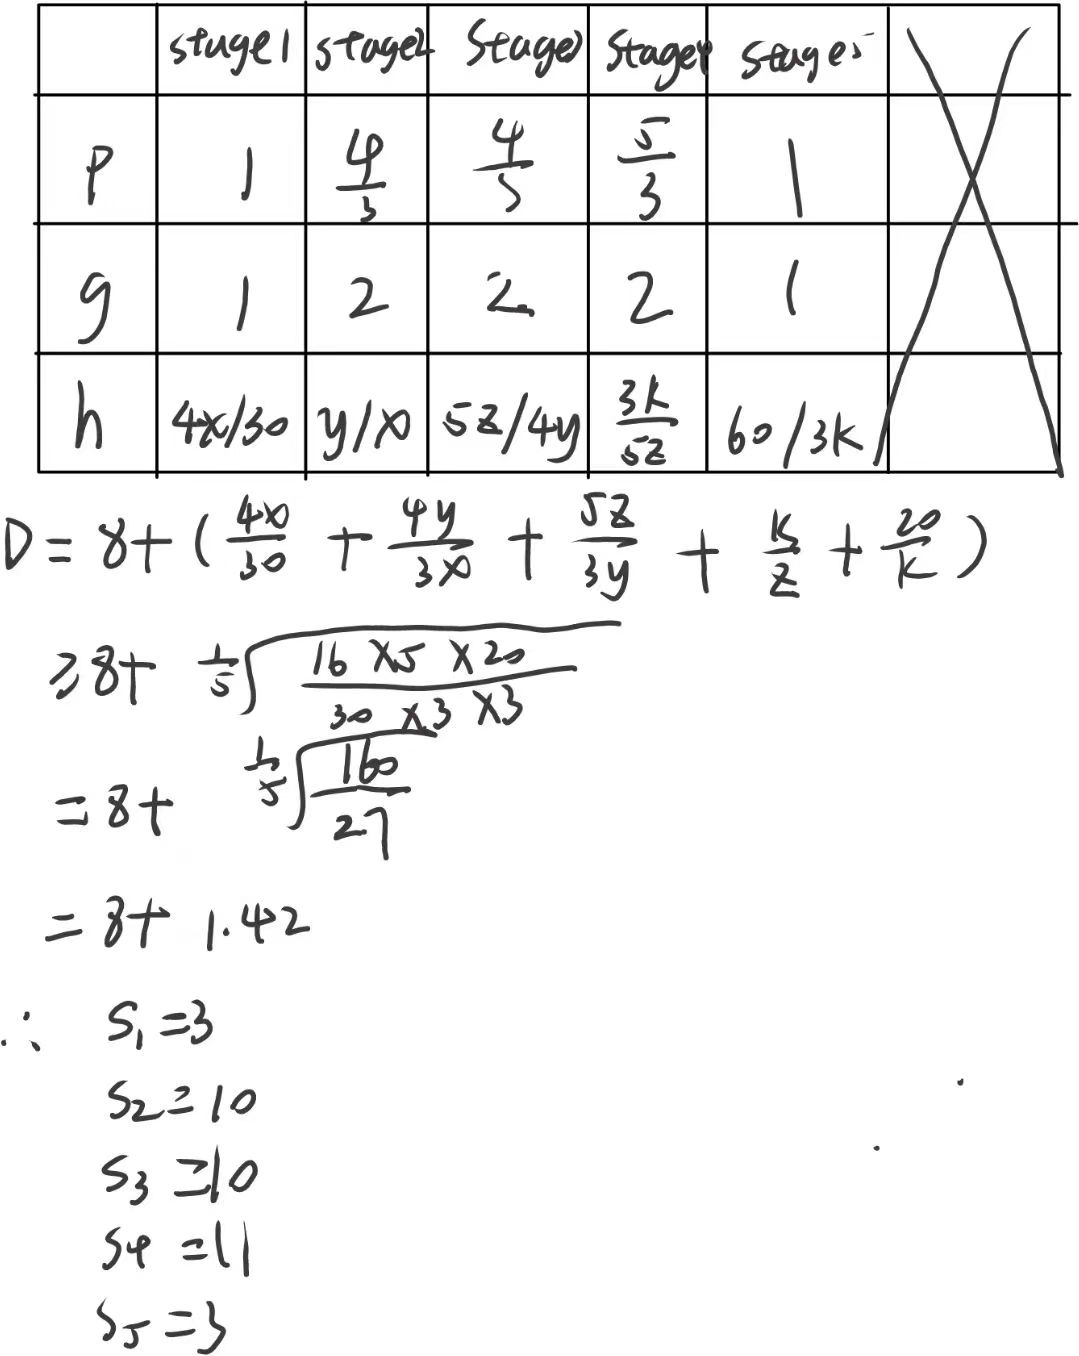 stage1 stage2 Stage3 Stage4 stage5
p 1 4/3 4/3 5/3 1
g 1 2 2 2 1
h 4x/30 y/x 5z/4y 3k/5z 60/3k
D = 8+ ( 4x/30 + 4y/3x + 5z/3y + k/z + 20/k )
≥ 8+ 1/5√(16 × 5 × 20 / 30 × 3 × 3)
= 8+ 1/5√(160/27)
= 8+ 1.42
∴ S1 = 3
S2 = 10
S3 = 10
S4 = 11
S5 = 3